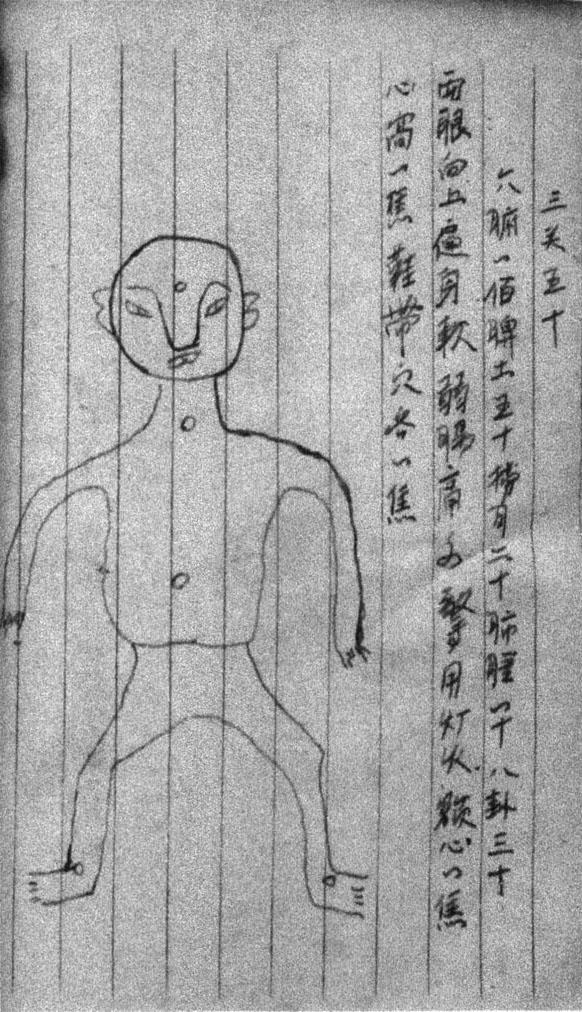 三关五十
六腑一佰脾土五十 二十肺 一十八卦三十
两眼向上 身软弱 用灯火额心一焦
心窝一焦 鞋带穴各一焦